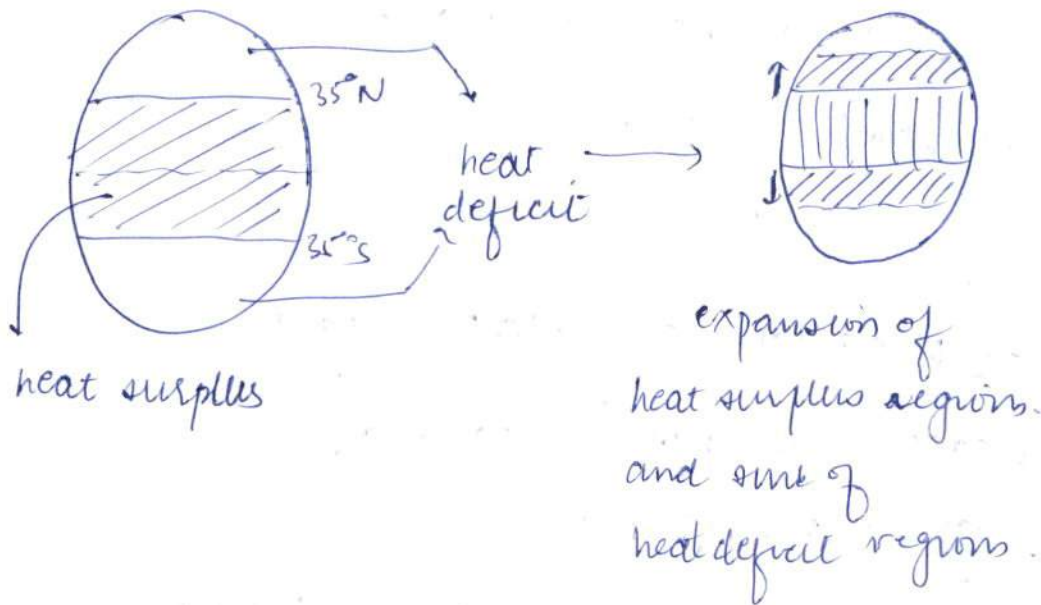 35°N
heat
deficit
35°S
heat surplus
expansion of
heat surplus regions.
and of
heat deficit regions.